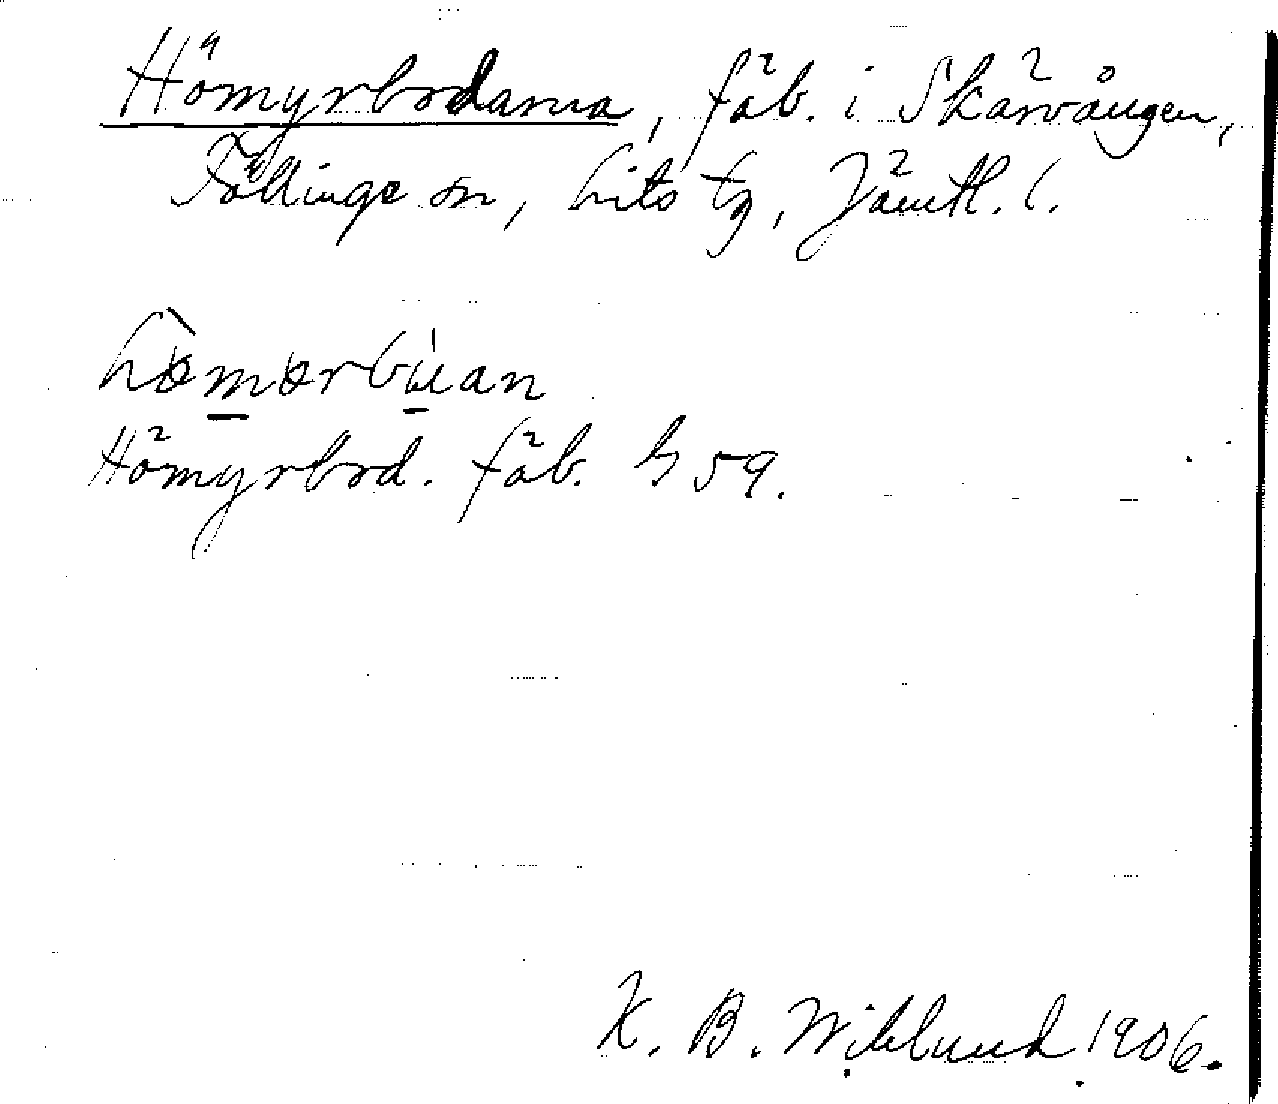 Hömyrbodarna, fäb. i Skärvången,
Föllinge sn, Lits tg, Jämtl. l.
hömörbúan
Hömyrbod. fäb. h 59.
K. B. Wiklund 1906.